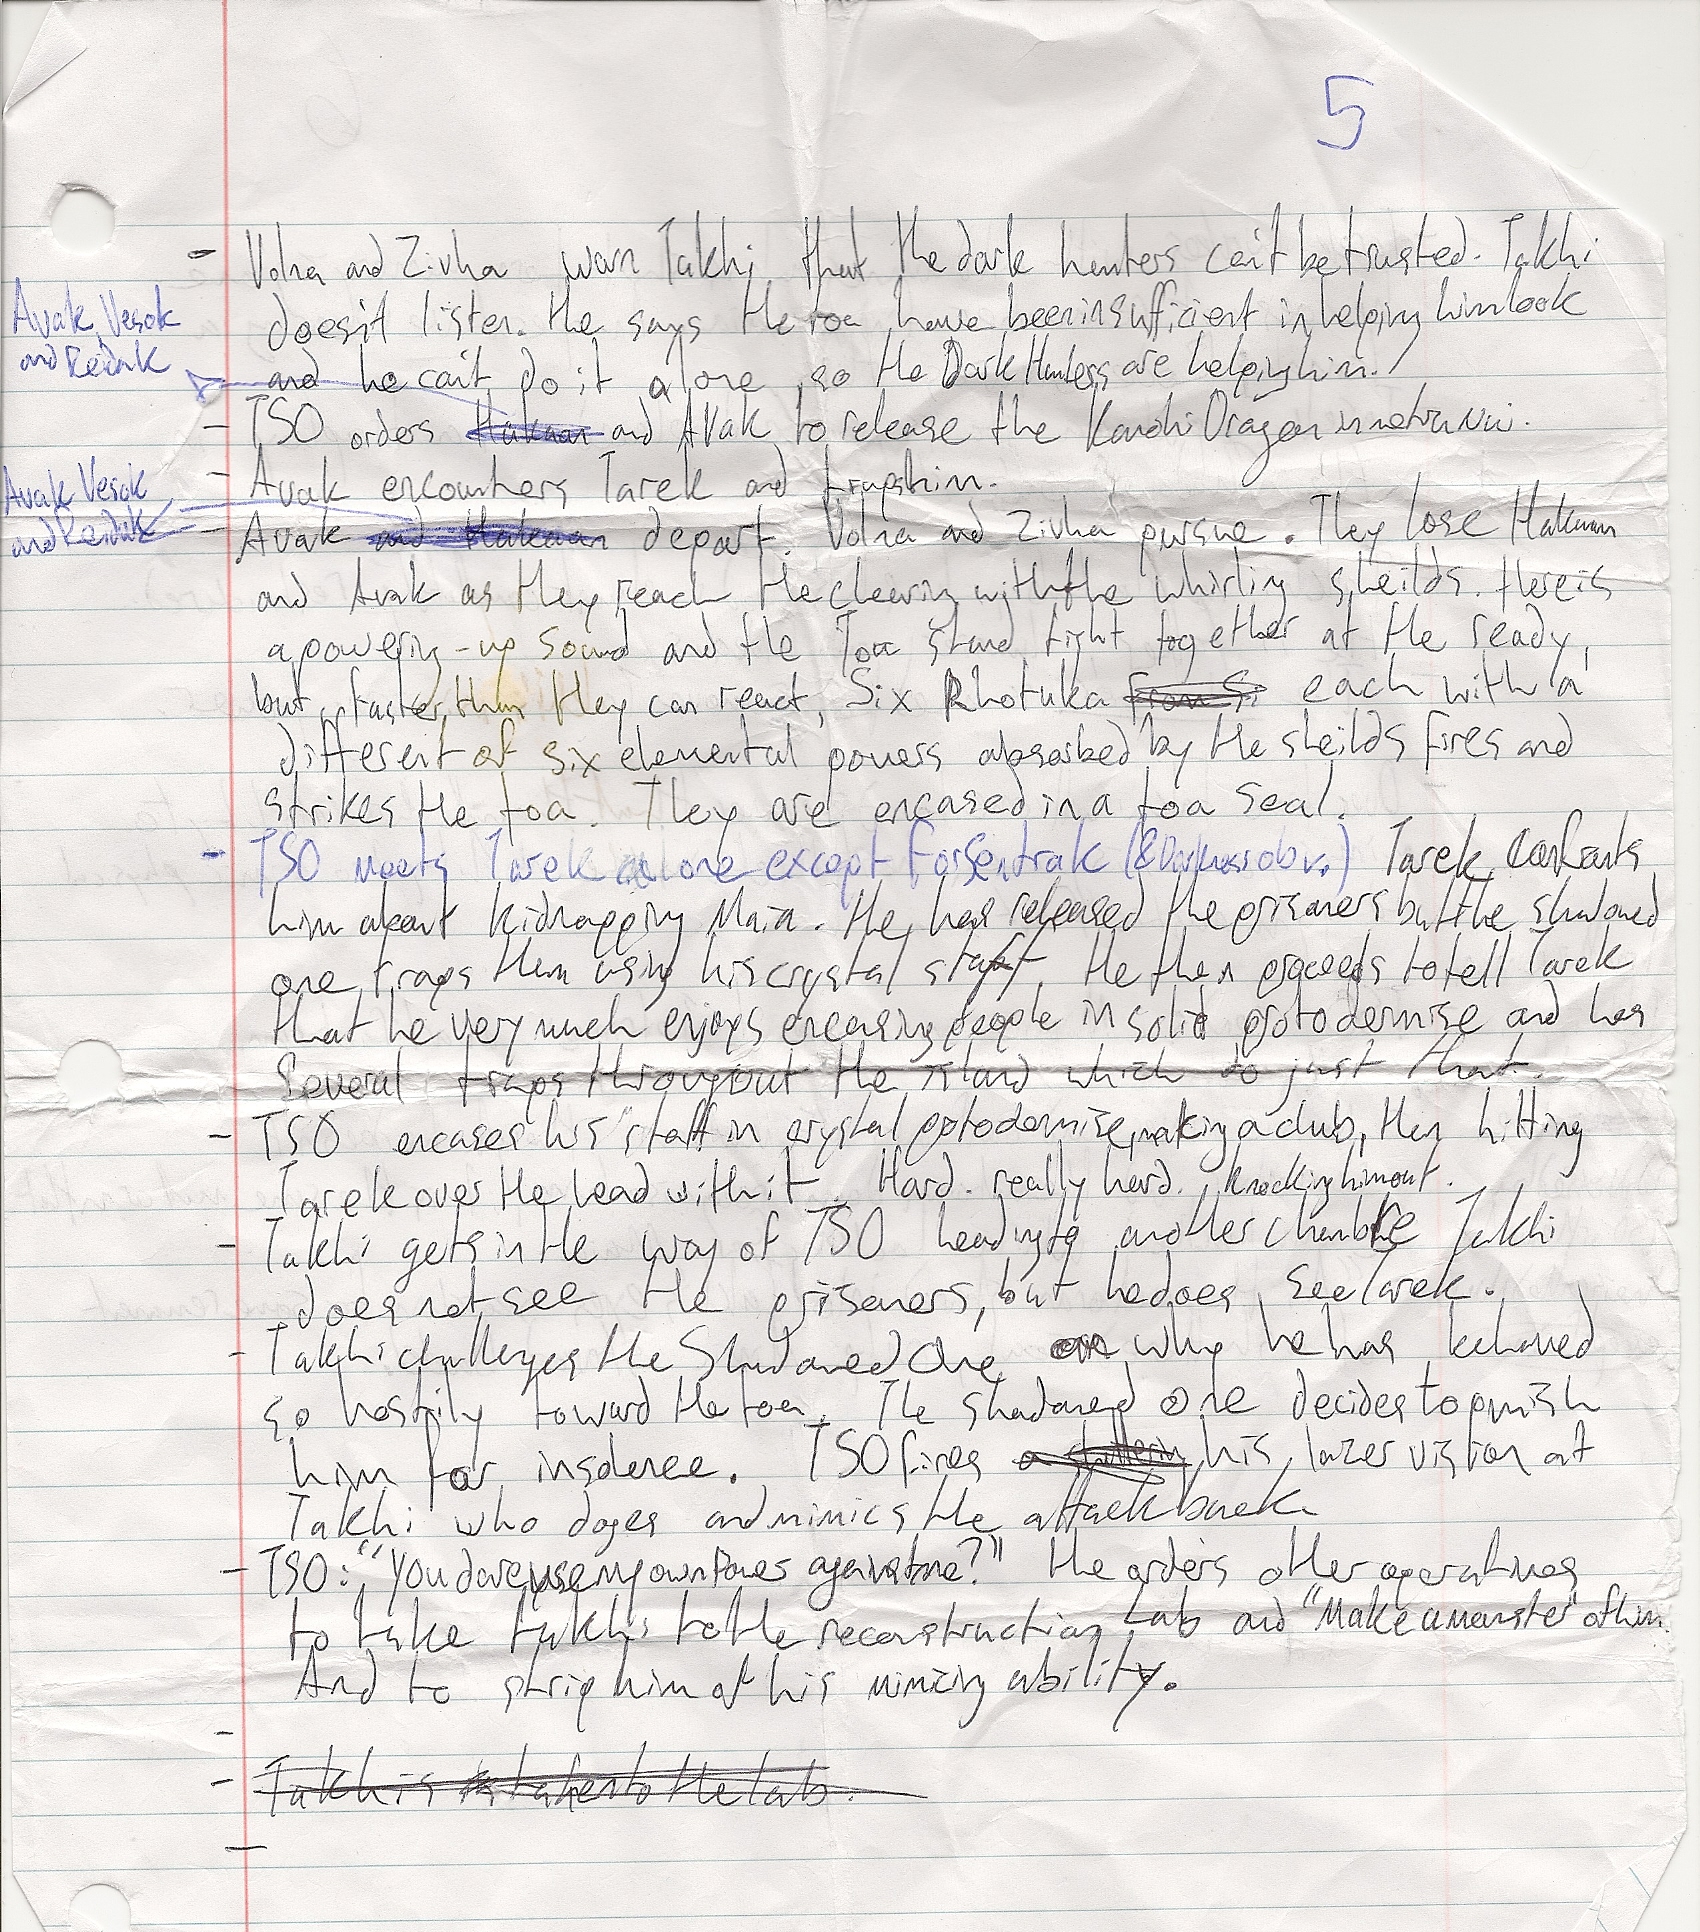 5
- Volna and Zivha warn Takhi that the dark hunters can't be trusted. Takhi
doesn't listen. He says the toa have been insufficient in helping him look
and he can't do it alone so the Dark Hunters are helping him.
Avak, Vezok
and Reidak
- TSO orders Hakaan and Avak to release the Kanohi Dragon in metru Nui.
- Avak encounters Tarek and traps him.
Avak Vezok
and Reidak
- Avak and Hakaan depart. Volna and Zivha pursue. They lose Hakaan
and Avak as they reach the clearing with the whirling sheilds. there is
a powering-up sound and the Toa stand tight together at the ready,
but faster than they can react, Six Rhotuka from Si each with a
different of six elemental powers absorbed by the sheilds fires and
strikes the toa. They are encased in a toa seal.
- TSO meets Tarek alone except for Sentrak (& Darkness obv.) Tarek confronts
him about kidnapping Maia. He has released the prisoners but the shadowed
one traps them using his crystal staff. He then proceeds to tell Tarek
that he very much enjoys encasing people in solid protodermise and has
Several traps throughout the island which do just that.
- TSO encases his staff in crystal protodermise, making a club, then hitting
Tarek over the head with it. Hard. really hard. knocking him out.
- Takhi gets in the way of TSO heading to another chambre Takhi
does not see the prisoners, but he does see Tarek.
- Takhi challenges the Shadowed One on why he has behaved
so hostily toward the toa. The shadowed one decides to punish
him for insolence. TSO fires a his lazer vision at
Takhi who doges and mimics the attack back.
- TSO: "You dare use my own Power against me?" He orders other operatives
to take takhi to the reconstruction Lab and "Make a monster" of him.
And to strip him of his mimicing ability.
-
- Takhi is taken to the lab.
-